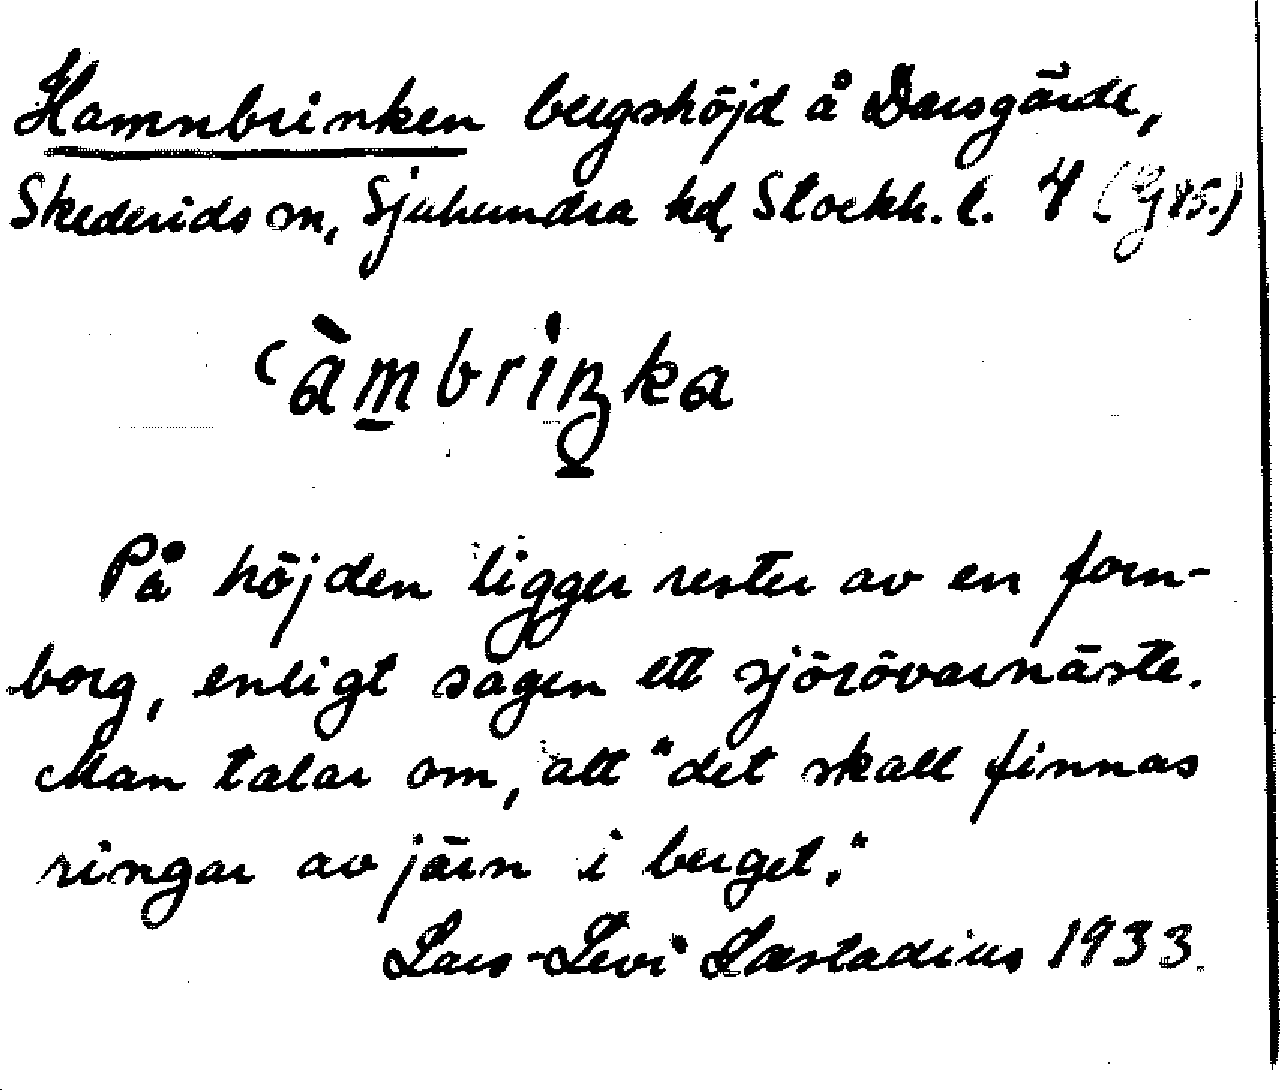 Hamnbrinken bergshöjd å Darsgärde,
Skederids sn, Sjuhundra hd, Stockh. l. 4 (G 85.)
àmbriŋka
På höjden ligger rester av en forn-
borg, enligt sägen ett sjörövarnäste.
Man talar om, att "det skall finnas
ringar av järn i berget."
Lars-Levi Læstadius 1933.